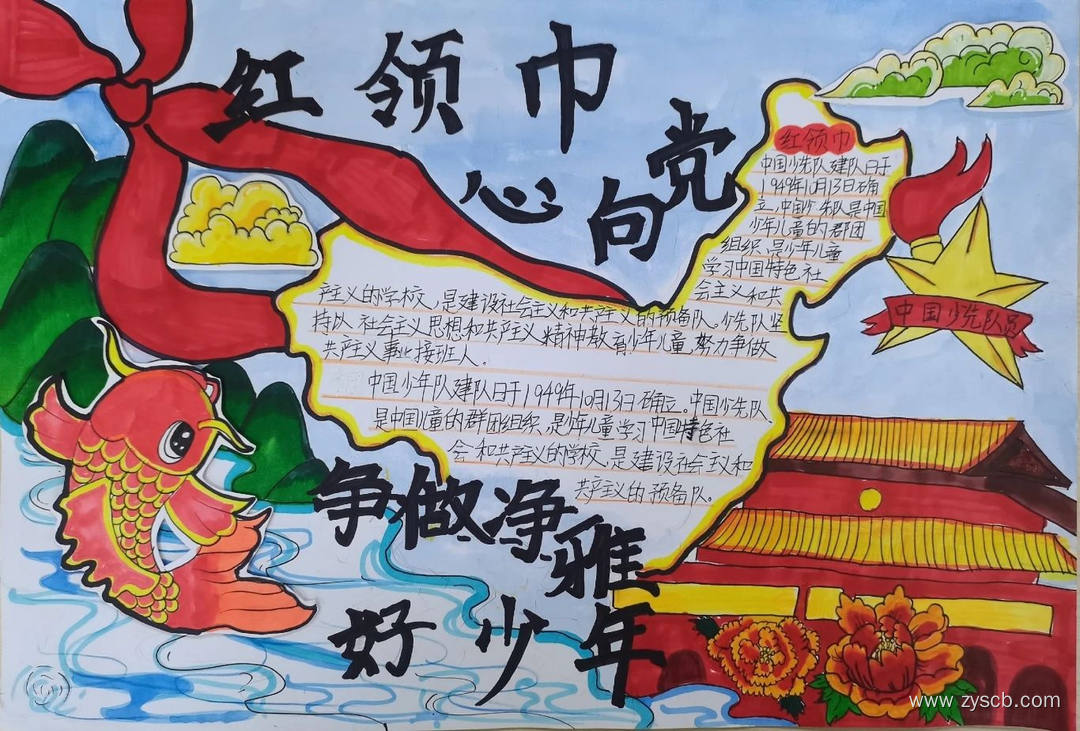 红领巾
心向党
红领巾
中国少先队建队日于
1949年10月13日确
立,中国少先队是中国
少年儿童的群团
组织,是少年儿童
学习中国特色社
会主义和共
产主义的学校,是建设社会主义和共产主义的预备队。少先队坚
持以社会主义思想和共产主义精神教育少年儿童,努力争做
共产主义事业接班人。
中国少年队建队日于1949年10月13日确立。中国少先队、
是中国儿童的群团组织、是少年儿童学习中国特色社
会和共产主义的学校、是建设社会主义和
共产主义的预备队。
中国少先队员
争做净雅
好少年
www.zyscb.com